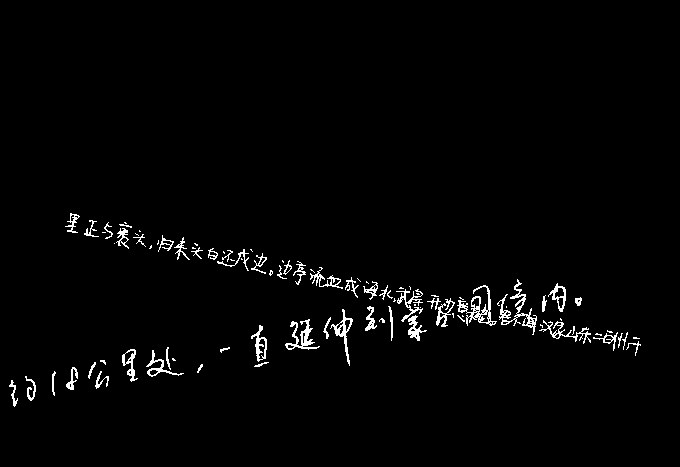 里正与裹头,归来头白还戍边。边亭流血成海水,武皇开边意未已。君不闻汉家山东二百州,千
约18公里处,一直延伸到蒙古国境内。